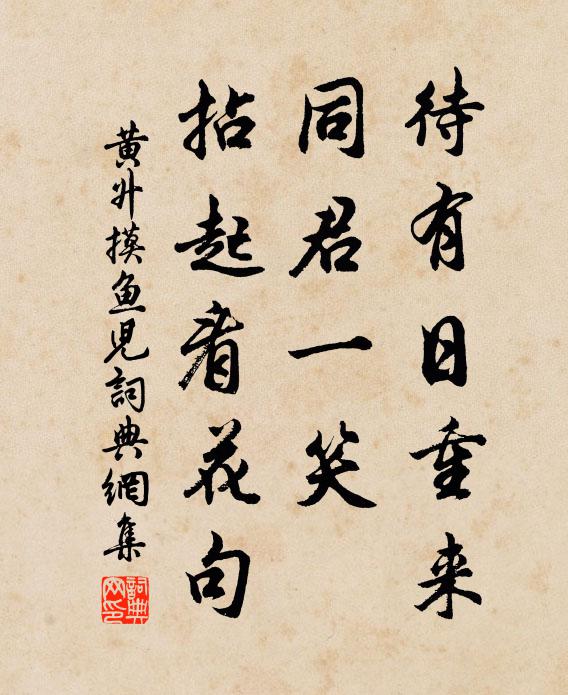 待有日重来
同君一笑
拈起看花句
黄升摸鱼儿詞典網集
詞典网印